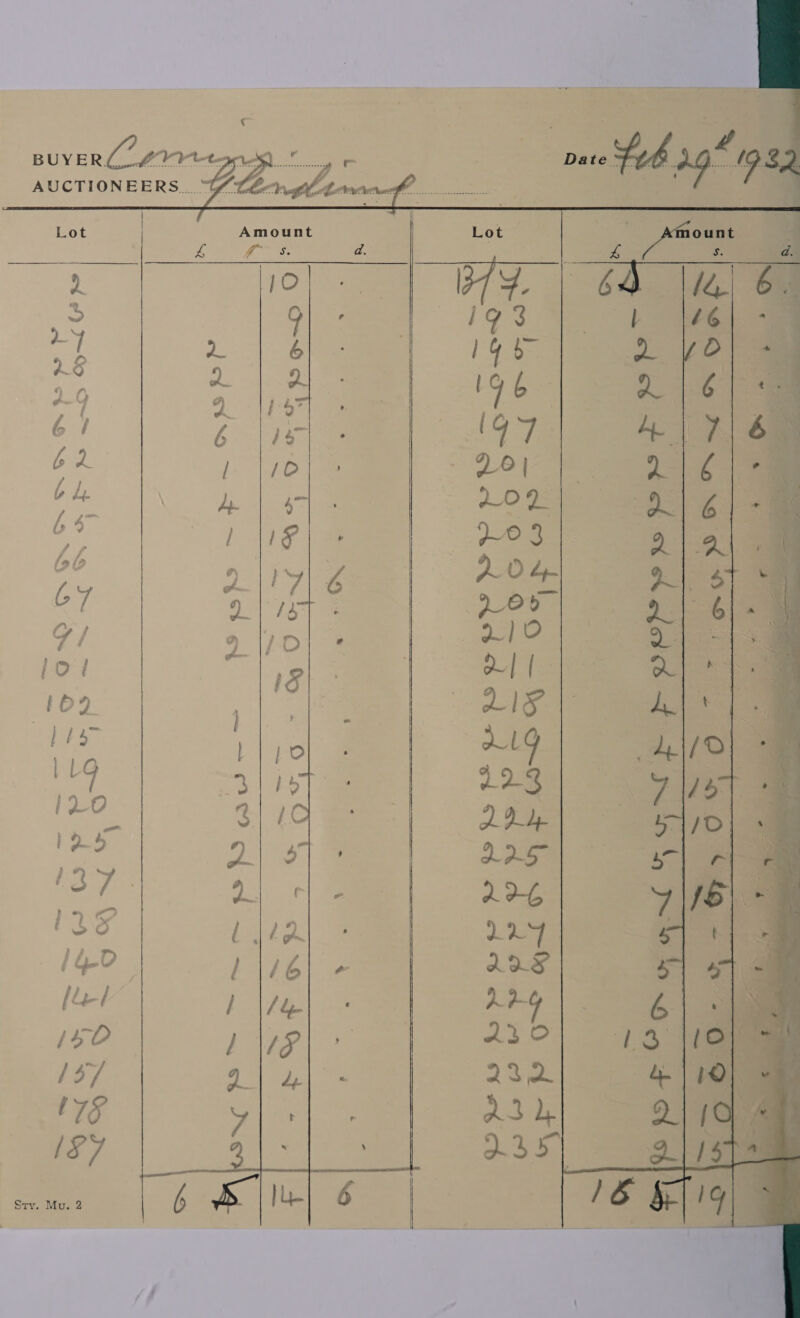 BUYER
AUCTIONEERS
Date Feb 29th 1932
Lot Amount Lot Amount
£ s. d. £ s. d.
2 10 - B/F. 64 14 6.
3 9 - 193 1 16 -
27 2 6 - 195 2 10 -
28 2 2 - 196 2 6 -
29 2 15 - 197 4 7 6
61 6 15 - 201 2 6 -
62 1 10 - 202 2 6 -
64 4 5 - 203 2 2 -
65 1 18 - 204 2 5 -
66 2 17 6 205 2 6 -
67 2 15 - 210 2 - -
91 2 10 - 211 2 - -
101 18 218 4 - -
102 1 - - 219 4 10 -
115 1 10 - 223 7 15 -
119 3 15 - 224 5 10 -
120 3 10 225 5 - -
125 2 5 - 226 7 15 -
137 2 - - 227 5 - -
138 1 12 - 228 5 5 -
140 1 16 - 229 6 - -
141 1 14 - 230 13 10 -
150 1 18 - 232 4 10 -
157 2 4 - 234 2 10 -
178 7 - - 235 2 15 -
187 3 - -
Sty. Mu. 2 6 14 6 16 19 -